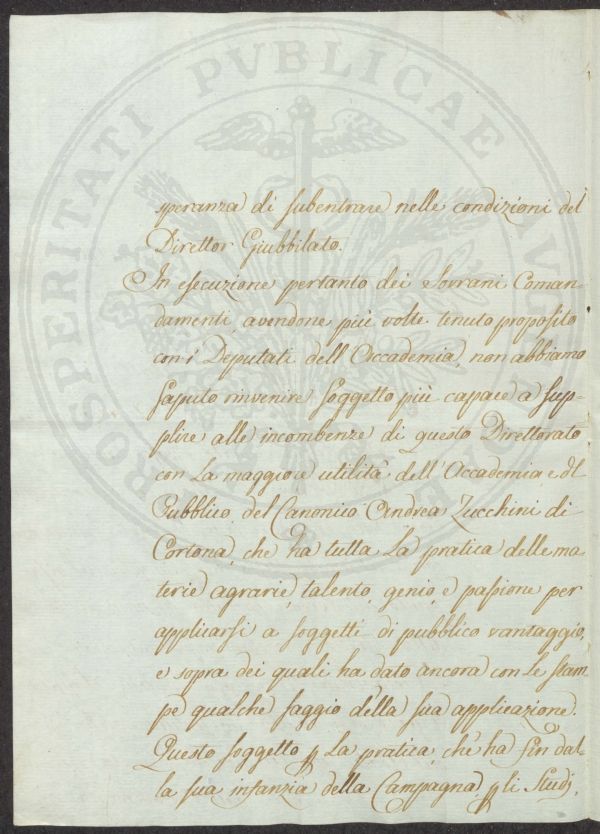 PROSPERITATI PVBLICAE AVGENDAE
speranza di subentrare nelle condizioni del
Direttor Giubbilato.
In esecuzione pertanto dei Sovrani Coman-
damenti, avendone più volte tenuto proposito
con i Deputati dell'Accademia, non abbiamo
saputo rinvenire soggetto più capace a sup-
plire alle incombenze di questo Direttorato
con la maggiore utilità dell'Accademia e del
Pubblico, del Canonico Andrea Zucchini di
Cortona, che ha tutta la pratica delle ma
terie agrarie, talento, genio, e passione per
applicarsi a soggetti di pubblico vantaggio,
e sopra dei quali ha dato ancora con le stam
pe qualche saggio della sua applicazione.
Questo soggetto p la pratica, che ha fin dal-
la sua infanzia della Campagna, p li Studj,